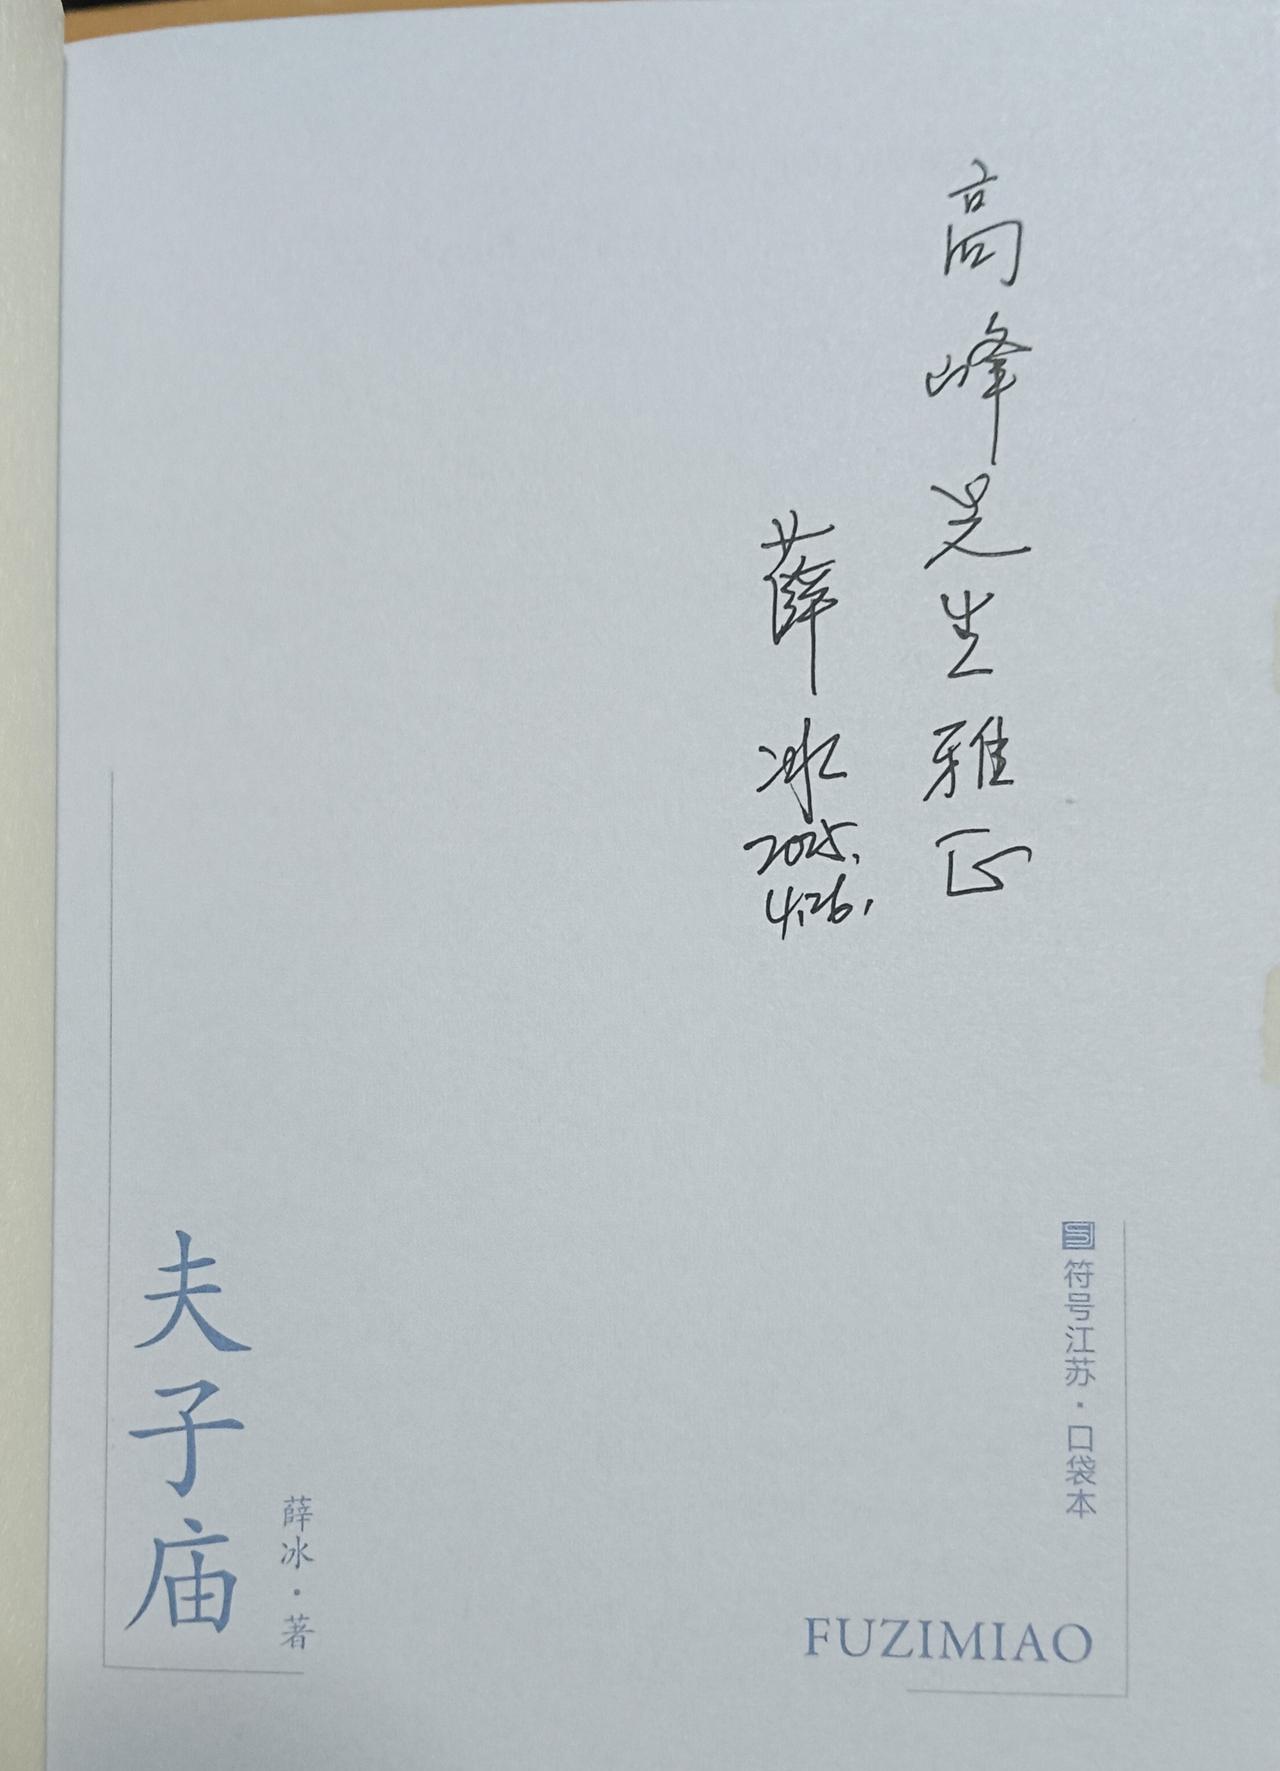 高峰先生雅正
薛冰
2025.
4.26.
符号江苏·口袋本
夫子庙
薛冰·著
FUZIMIAO